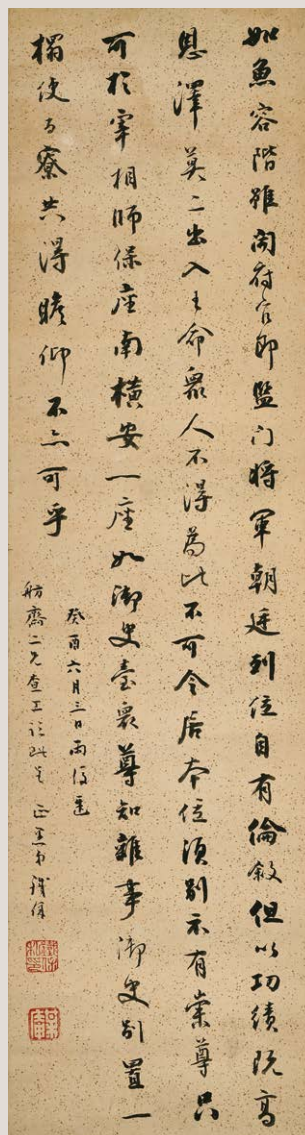 如魚容階雖開府官即監門將軍朝廷列位自有倫敘但以功績既高
恩澤莫二出入王命衆人不得為比不可令居本位須別示有崇尊只
可於宰相師保座南橫安一座如御史臺衆尊知雜事御史別置一
榻使百寮共得瞻仰不亦可乎
癸酉六月三日雨後
舫齋二兄查工臨此呈 正 愚弟鐵保